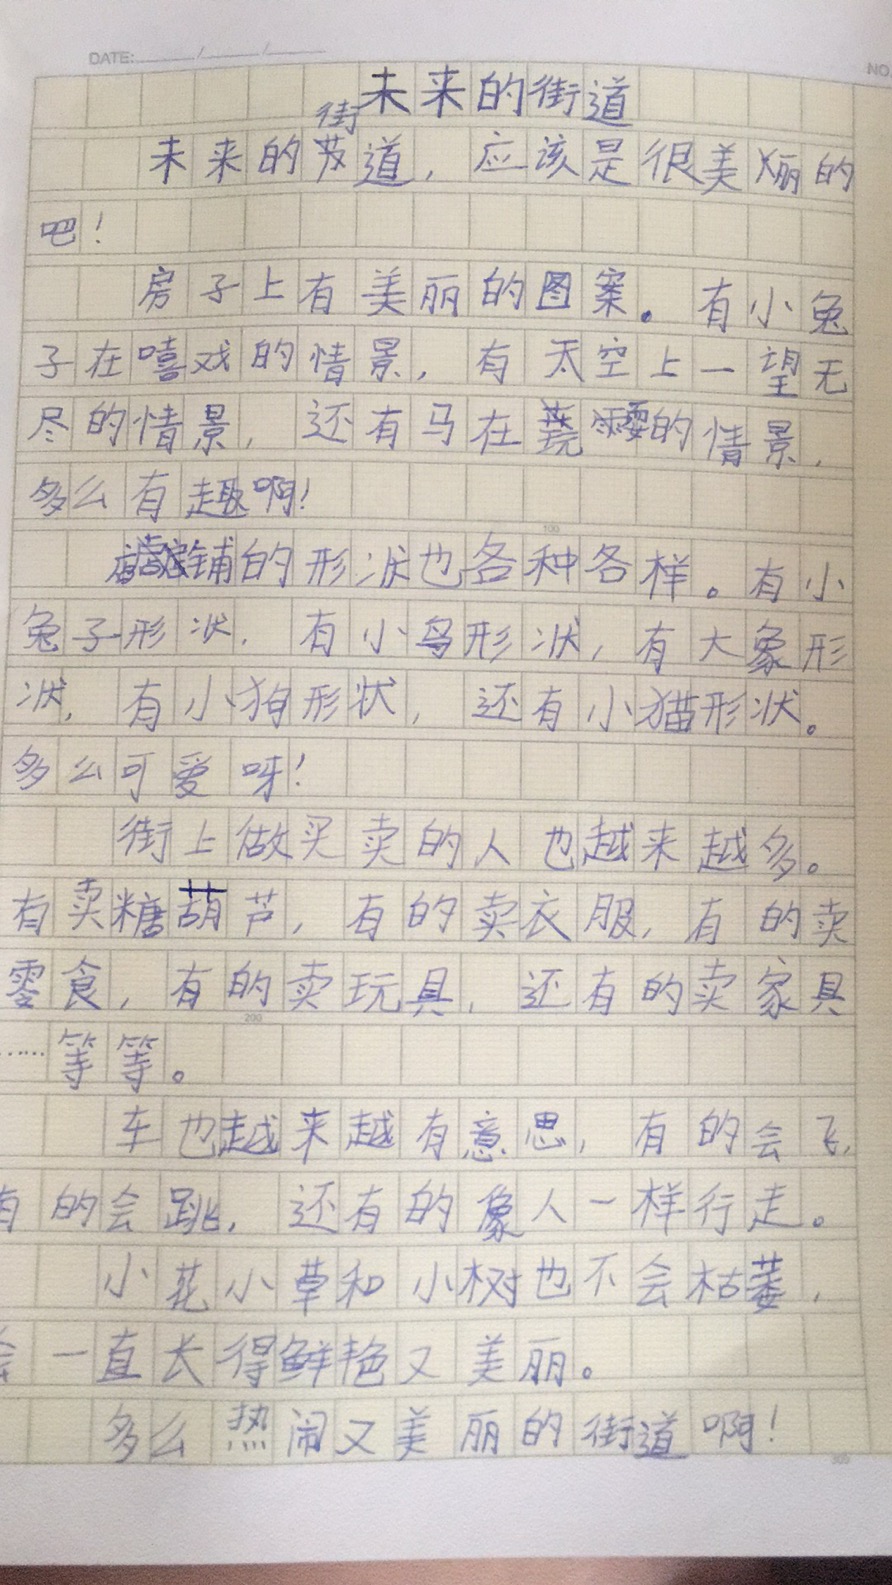 DATE: / /
NO
未来的街道
街
未来的道，应该是很美丽的
吧！
房子上有美丽的图案。有小兔
子在嘻戏的情景，有太空上一望无
尽的情景，还有马在的情景，
多么有趣啊！
100
店铺的形状也各种各样。有小
兔子形状，有小鸟形状，有大象形
状，有小狗形状，还有小猫形状。
多么可爱呀！
街上做买卖的人也越来越多。
有卖糖葫芦，有的卖衣服，有的卖
零食，有的卖玩具，还有的卖家具
200
……等等。
车也越来越有意思，有的会飞，
有的会跳，还有的像人一样行走。
小花小草和小树也不会枯萎，
会一直长得鲜艳又美丽。
多么热闹又美丽的街道啊！
300